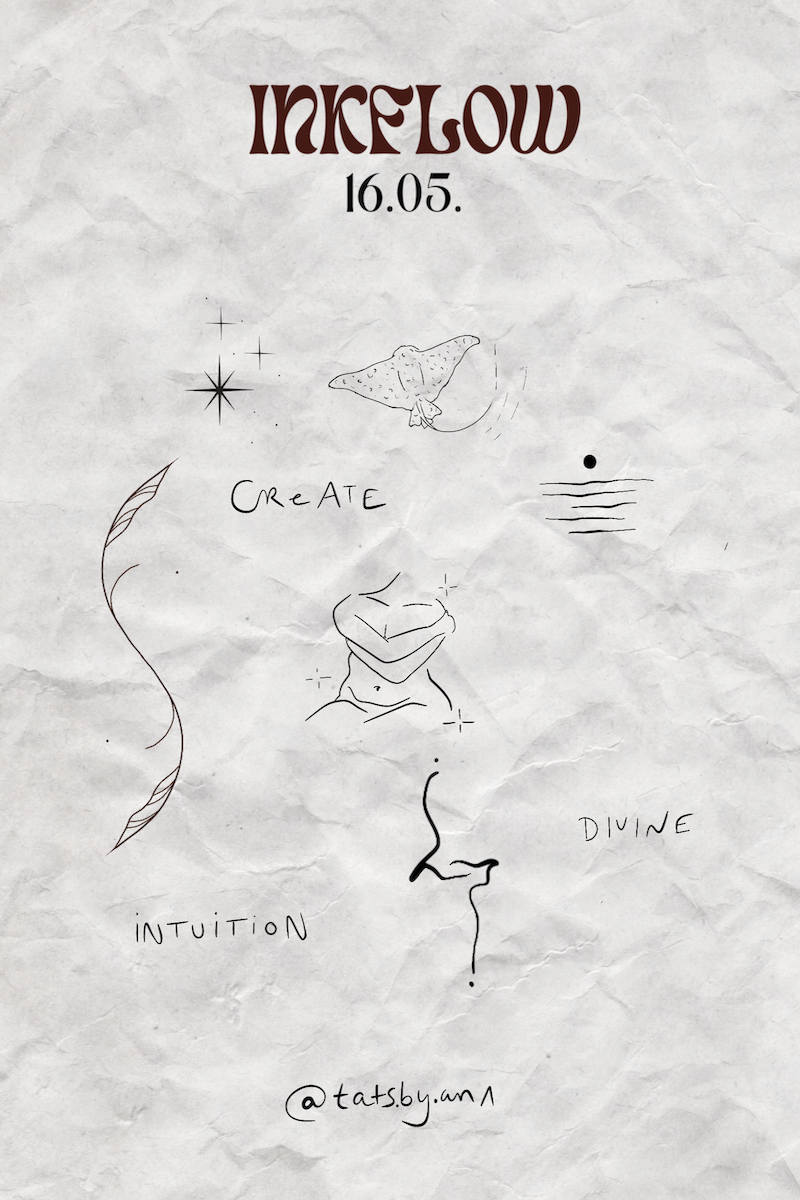 INKFLOW
16.05.
CReATE
DIVINE
iNTUiTioN
@tats.by.anA